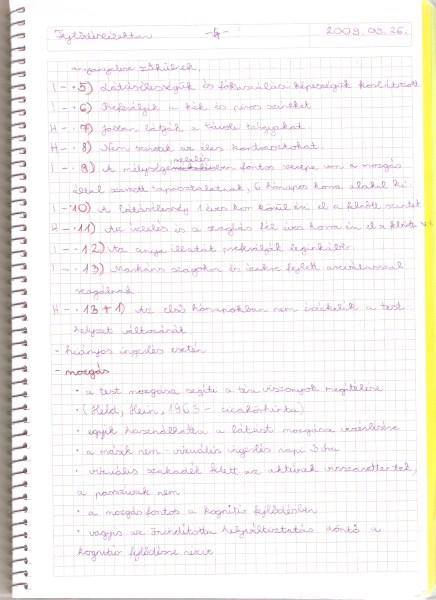 Fejlődéslélektan -4- 2009.09.26.
anyanyelvre szűkülnek.
I - · 5) Látásélességük és fókuszálás képességük korlátozott
I - · 6) Preferálják a kék és piros színeket
H - · 7) Jobban látják a távoli tárgyakat
H - · 8) Nem szeretik az éles kontrasztokat.
I - · 9) A mélységészlelésben fontos szerepe van a mozgás
által szerzett tapasztalatnak, 6 hónapos korra alakul ki.
I - · 10) A látásélesség 1 éves kor körül éri el a felnőtt szintet
H - · 11) Az ízlelés és a szaglás fél éves korra éri el a felnőtt
I - · 12) Az anya illatát preferálják leginkább.
I - · 13) Markáns szagokra és ízekre fejlett arcválasszal
reagálnak
H - · 13+1) Az első hónapokban nem érzékelik a test
helyzet változását
- hiányos ingerlés esetén
- mozgás
· a test mozgása segíti a téri viszonyok megítélését
· (Held, Hein, 1963 - cicakörhinta)
· egyik használhatta a látást mozgása vezérlésére
· a másik nem - vizuális ingerlés napi 3 óra
· vizuális szakadék felett az aktívak visszarettentek,
a passzívak nem
· a mozgás fontos a kognitív fejlődésben
· vagyis az önindította helyváltoztatás döntő a
kognitív fejlődés